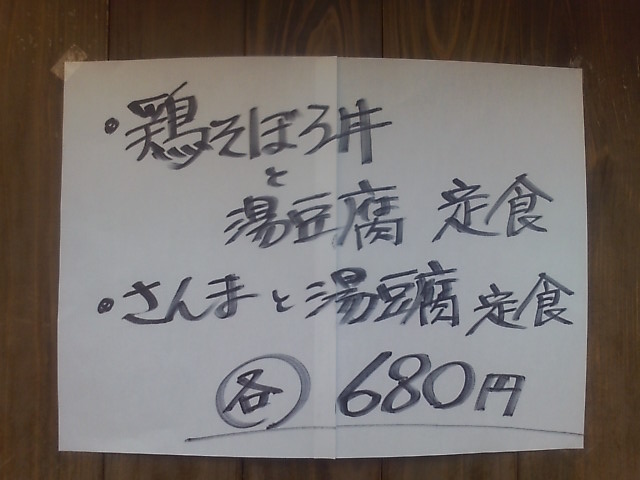 ・鶏そぼろ丼
と
湯豆腐 定食
・さんまと湯豆腐 定食
各 680円